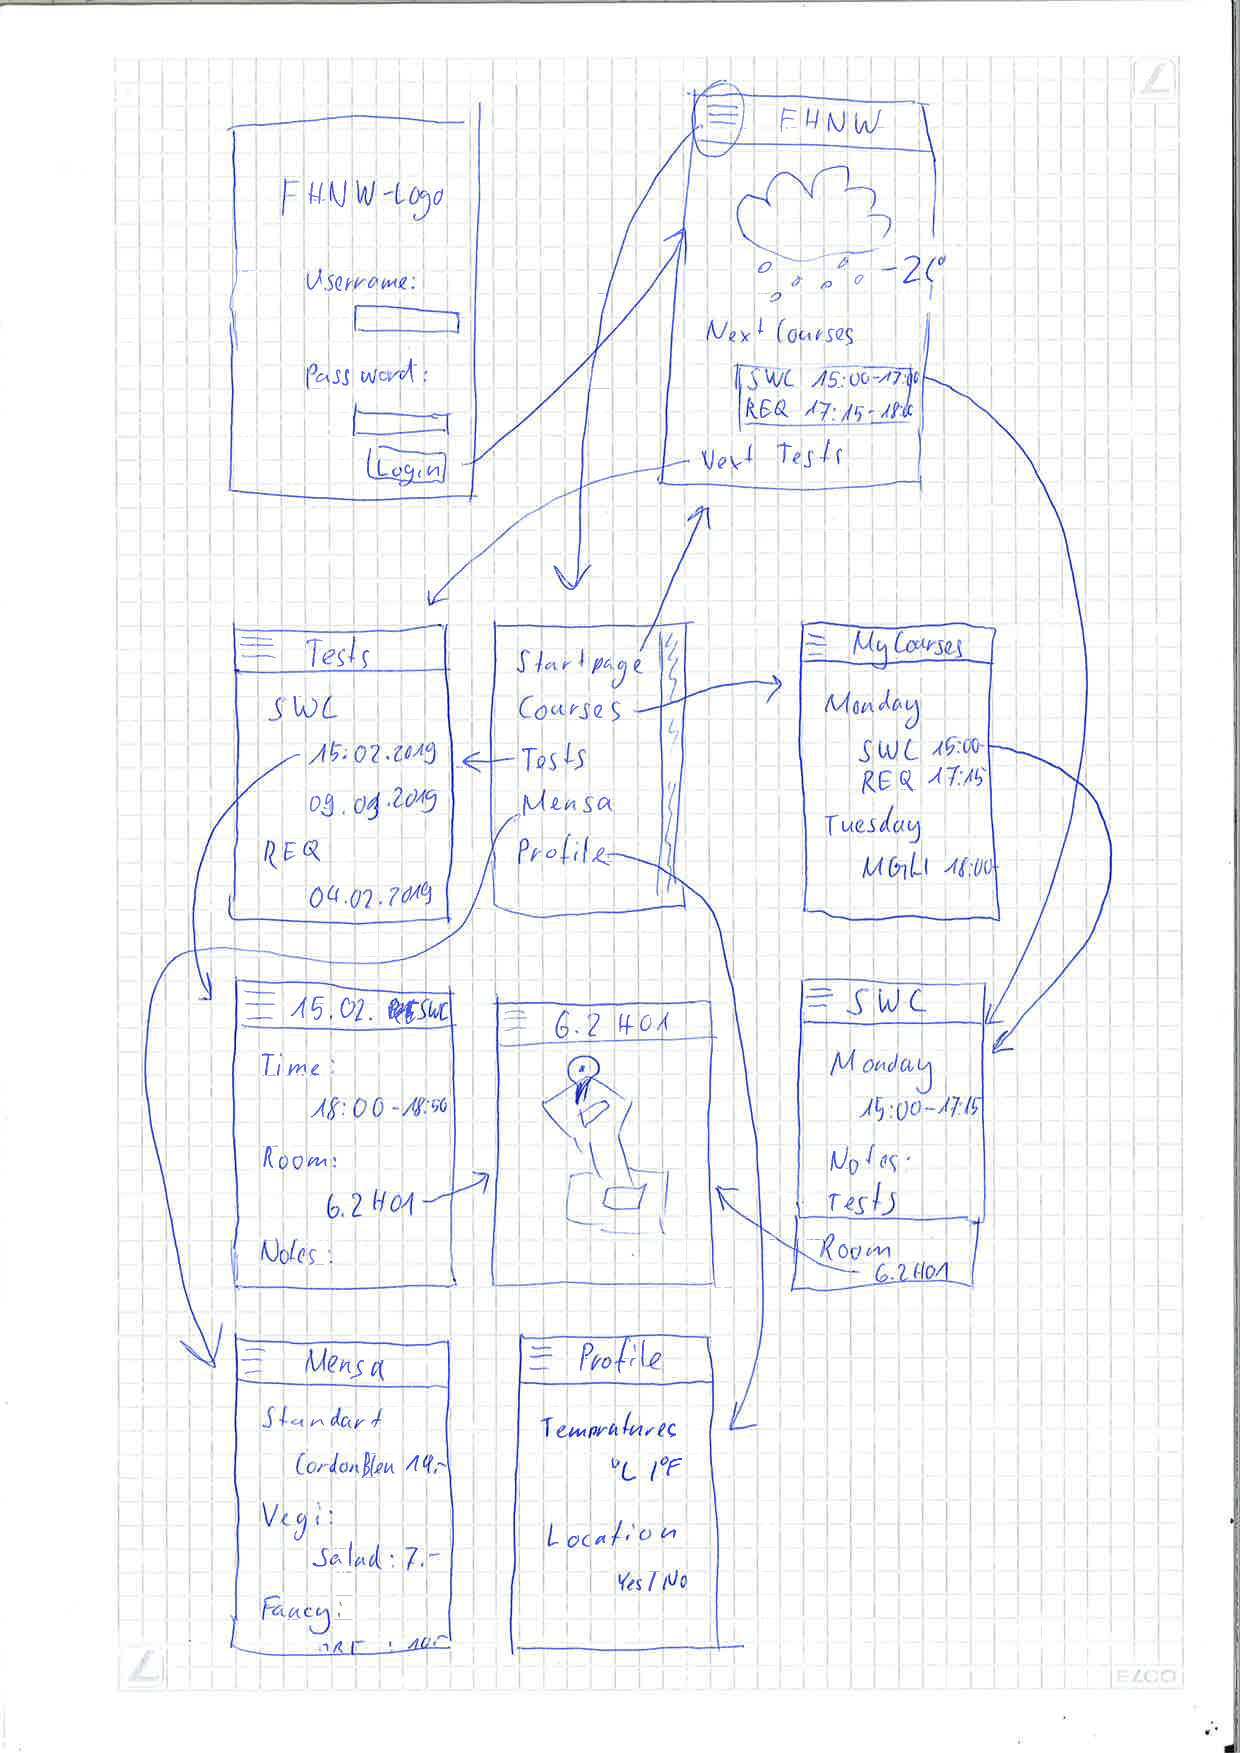 FHNW-Logo
Username:
Password:
Login
FHNW
-2C°
Next Courses
SWC 15:00-17:00
REQ 17:15-18:
Next Tests
Tests
SWC
15.02.2019
09.09.2019
REQ
04.02.2019
Startpage
Courses
Tests
Mensa
Profile
My Courses
Monday
SWC 15:00
REQ 17:15
Tuesday
MGLI 18:00
15.02. SWC
Time:
18:00-18:50
Room:
6.2H01
Notes:
6.2 H01
SWC
Monday
15:00-17:15
Notes:
Tests
Room
6.2H01
Mensa
Standart
CordonBleu 14.-
Vegi:
Salad: 7.-
Fancy:
Profile
Tempratures
°C/°F
Location
Yes/No
ELCO